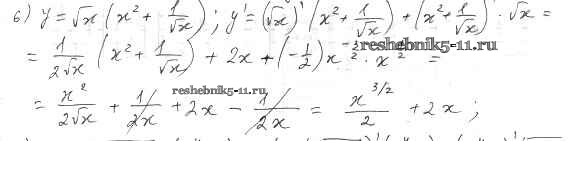 б) y = √x (x² + 1/√x); y' = (√x)' (x² + 1/√x) + (x² + 1/√x)' · √x =
= 1/(2√x) (x² + 1/√x) + 2x + (-1/2) x · x =
reshebnik5-11.ru
= x²/(2√x) + 1/(2x) + 2x - 1/(2x) = x^(3/2)/2 + 2x;
reshebnik5-11.ru